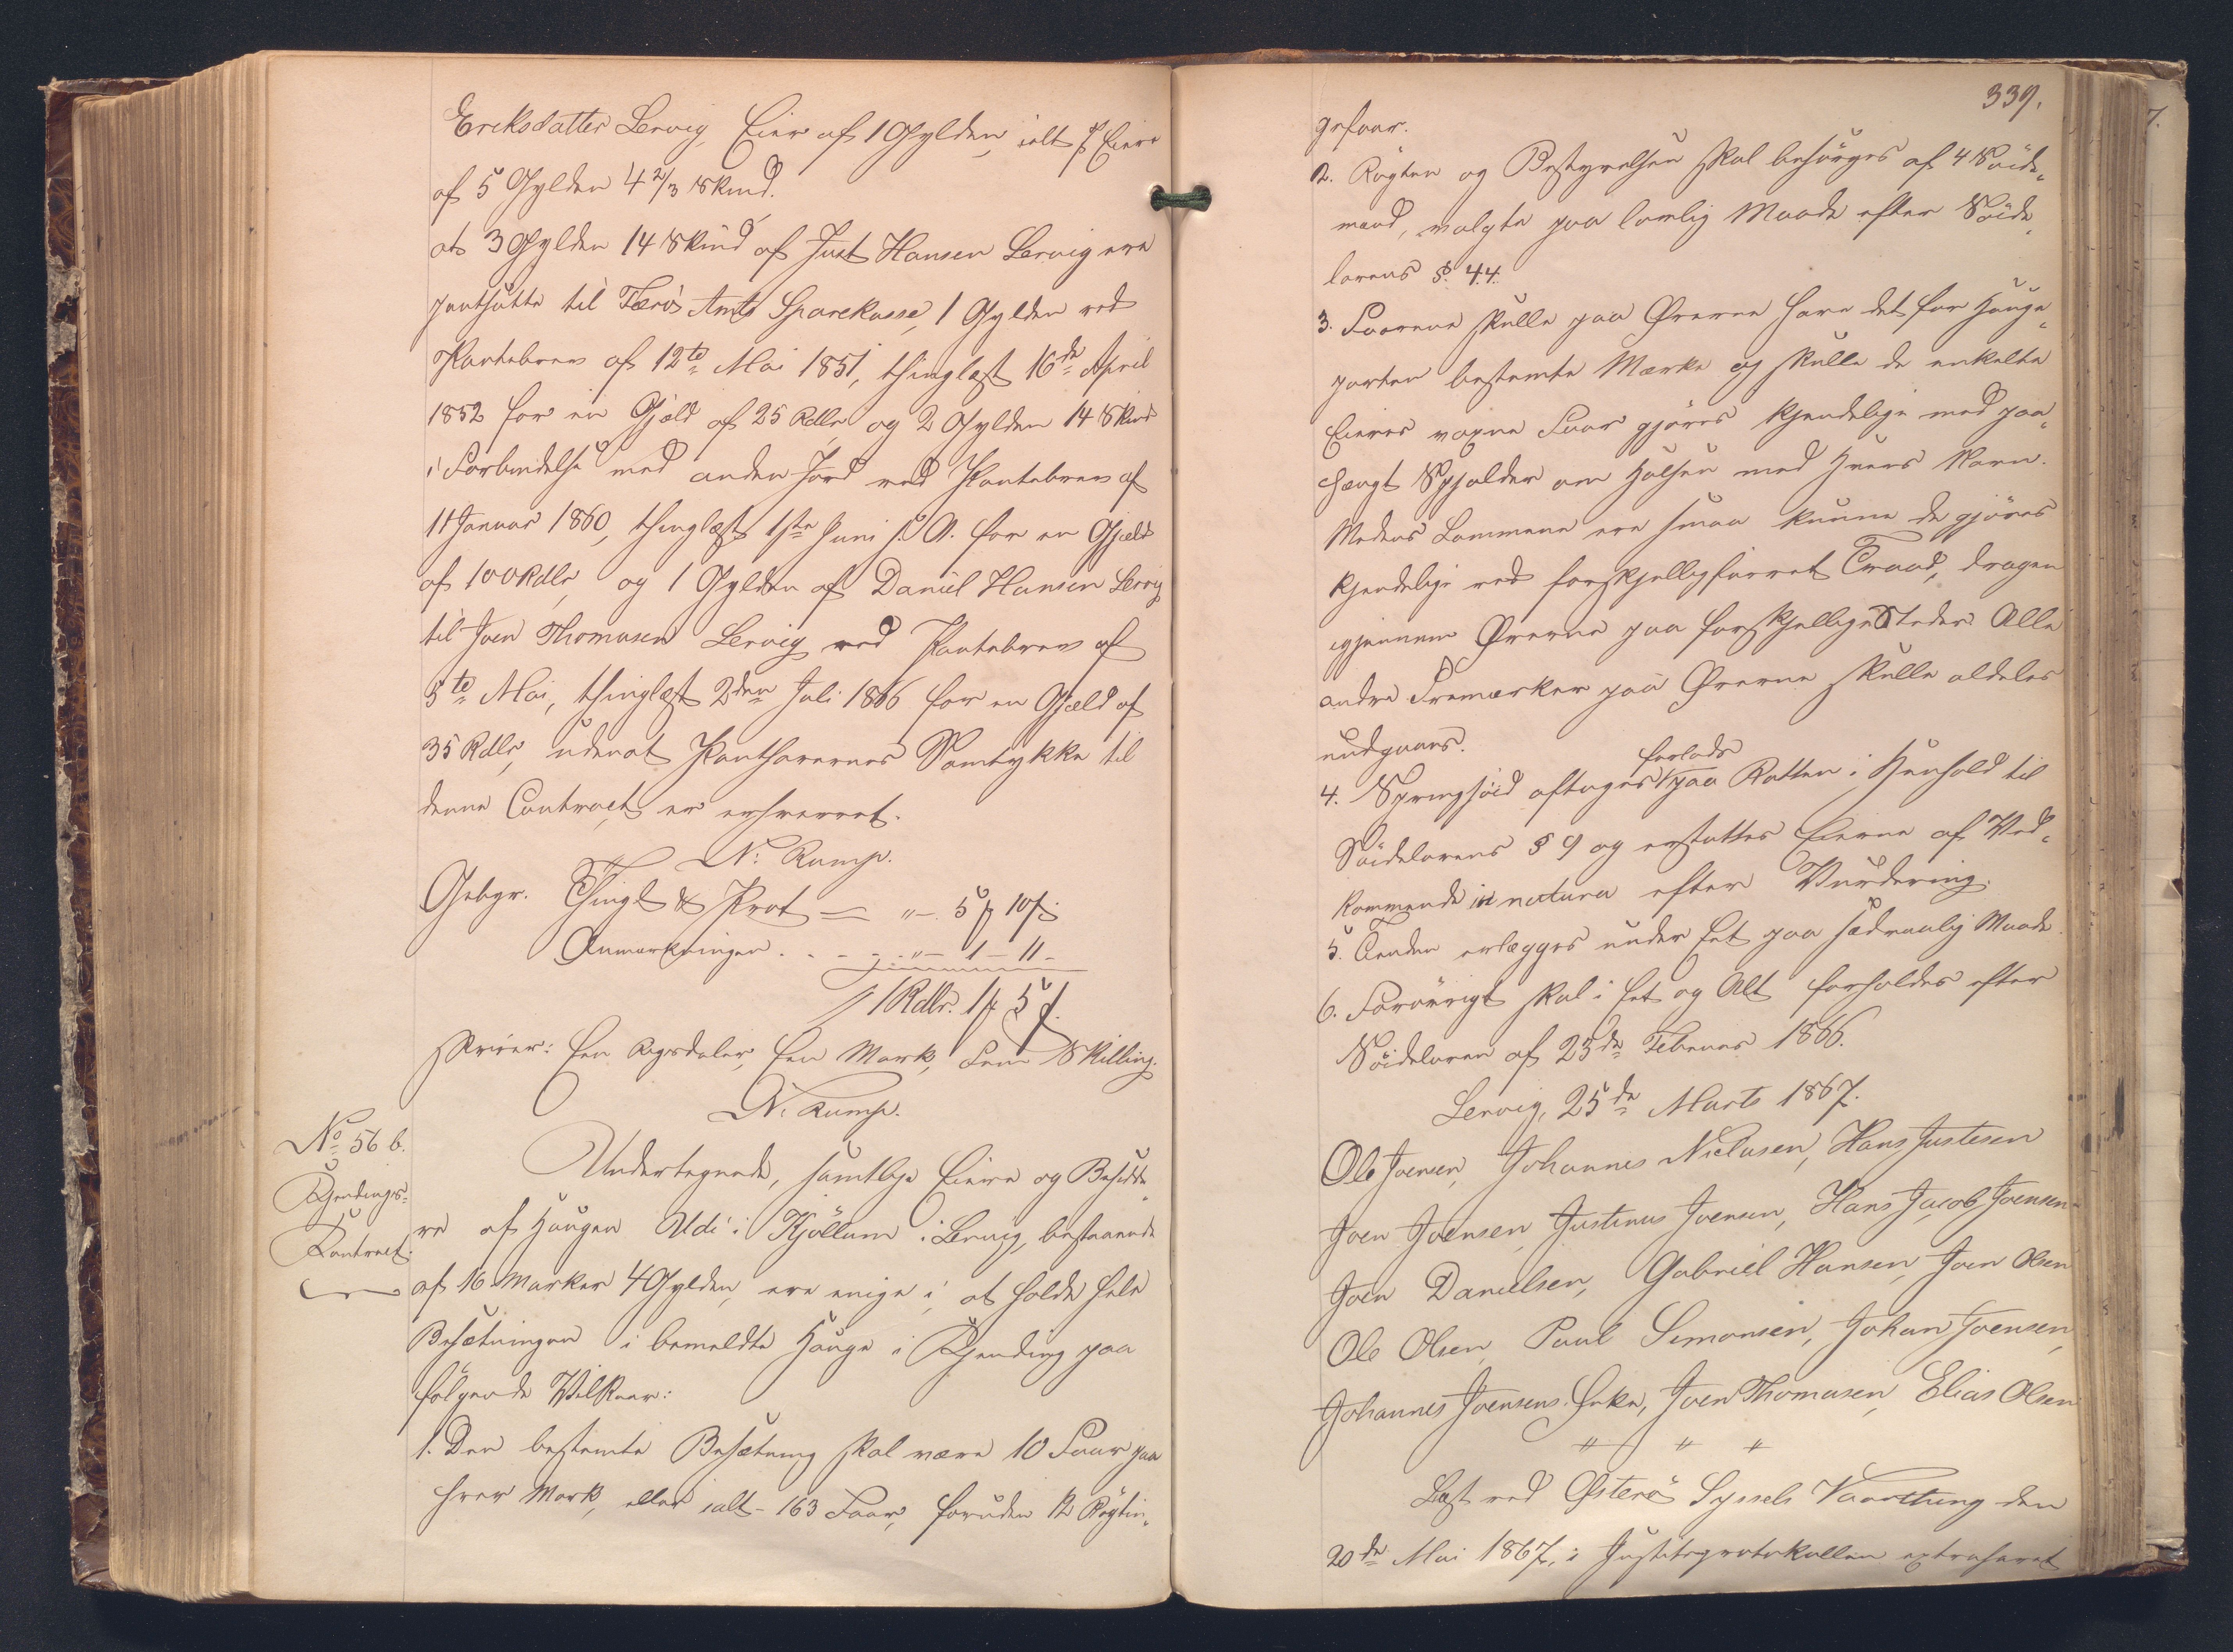 Ericksdatter Lervig, Eier af 1 Gylden, ialt 7 Eiere
af 5 Gylden 4 2/3 Skind.
at 3 Gylden 14 Skind af Just Hansen Lervig ere
pantsatte til Færø Amts Sparekasse, 1 Gylden ved
Pantebrev af 12te Mai 1851, thinglæst 16de April
1852 for en Gjæld af 25 Rdlr og 2 Gylden 14 Skind
i Forbindelse med anden Jord ved Pantebrev af
11 Januar 1860, thinglæst 1ste Juni s. A. for en Gjæld
af 100 Rdlr, og 1 Gylden af Daniel Hansen Lervig
til Joen Thomasen Lervig ved Pantebrev af
5te Mai, thinglæst 2den Juli 1866 for en Gjæld af
35 Rdlr, udenat Panthavernes Samtykke til
denne Contract er erhvervet.
N. Rump.
Gebyr. Thingl. & Prot = "- 5 ƒ 10 ß
Anmærkningen . . - - "- 1 - 11 -
1 Rdlr. 1 ƒ 5 ß.
skriver: Een Rigsdaler, Een Mark, Fem Skilling.
N. Rump.
No 56 b.
Kjendings-
Kontract.
Undertegnede, samtlige Eiere og Besidde-
re af Haugen Uldi i Kjøllum i Lervig, bestaaende
af 16 Marker 4 Gylden, ere enige i, at holde hele
Besætningen i bemeldte Hauge i Kjending paa
følgende Vilkaar:
1. Den bestemte Besætning skal være 10 Faar paa
hver Mark, eller ialt - 163 Faar, foruden 12 Røgtin-
339.
gsfaar.
2. Røgten og Bestyrelsen skal besørges af 4 Søide-
mænd, valgte paa lovlig Maade efter Søide-
lovens §. 44.
3. Faarene skulle paa Ørerne have det for Hauge-
parten bestemte Mærke og skulle de enkelte
Eieres voxne Faar gjøres kjendelige med paa-
hængt Spjælder om Halsen med Hvers Navn.
Medens Lammene ere smaa kunne de gjøres
kjendelige ved forskjelligfarvet Traad, dragen
igjennem Ørerne paa forskjellige Steder. Alle
andre Fremærker paa Ørerne skulle aldeles
undgaaes.
4. Springsøid aftages forlods paa Retten i Henhold til
Søidelovens § 9 og erstattes Eierne af Ved-
kommende in natura efter Vurdering.
5. Tienden erlægges under Eet paa sædvanlig Maade.
6. Forøvrigt skal i Eet og Alt forholdes efter
Søideloven af 23de Februar 1866.
Lervig, 25de Marts 1867.
Ole Joensen, Johannes Niclasen, Hans Justesen
Joen Joensen, Justinus Joensen, Hans Jacob Joensen
Joen Danielsen, Gabriel Hansen, Joen Olsen
Ole Olsen, Paul Simonsen, Johan Joensen,
Johannes Joensens Enke, Joen Thomasen, Elias Olsen
" " "
Læst ved Østerø Syssels Vaarthing den
20de Mai 1867, i Justitsprotokollen extraheret